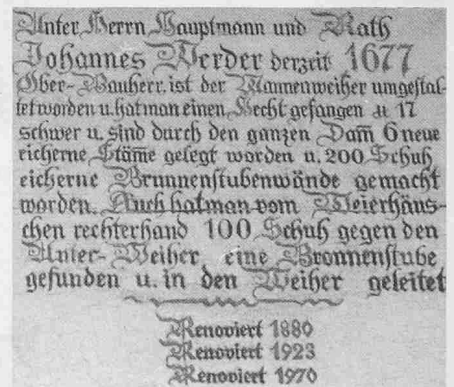 Unter Herrn Hauptmann und Rath
Johannes Werder derzeit 1677
Ober-Bauherr, ist der Mannenweiher umgestal-
tet worden u. hat man einen Hecht gefangen 17
schwer u. sind durch den ganzen Dam̄ 6 neue
eicherne Stäme gelegt worden u. 200 Schuh
eicherne Brunnenstubenwände gemacht
worden. Auch hat man vom Weierhäus-
chen rechterhand 100 Schuh gegen den
Unter-Weiher eine Bronnenstube
gefunden u. in den Weiher geleitet
Renoviert 1880
Renoviert 1923
Renoviert 1970